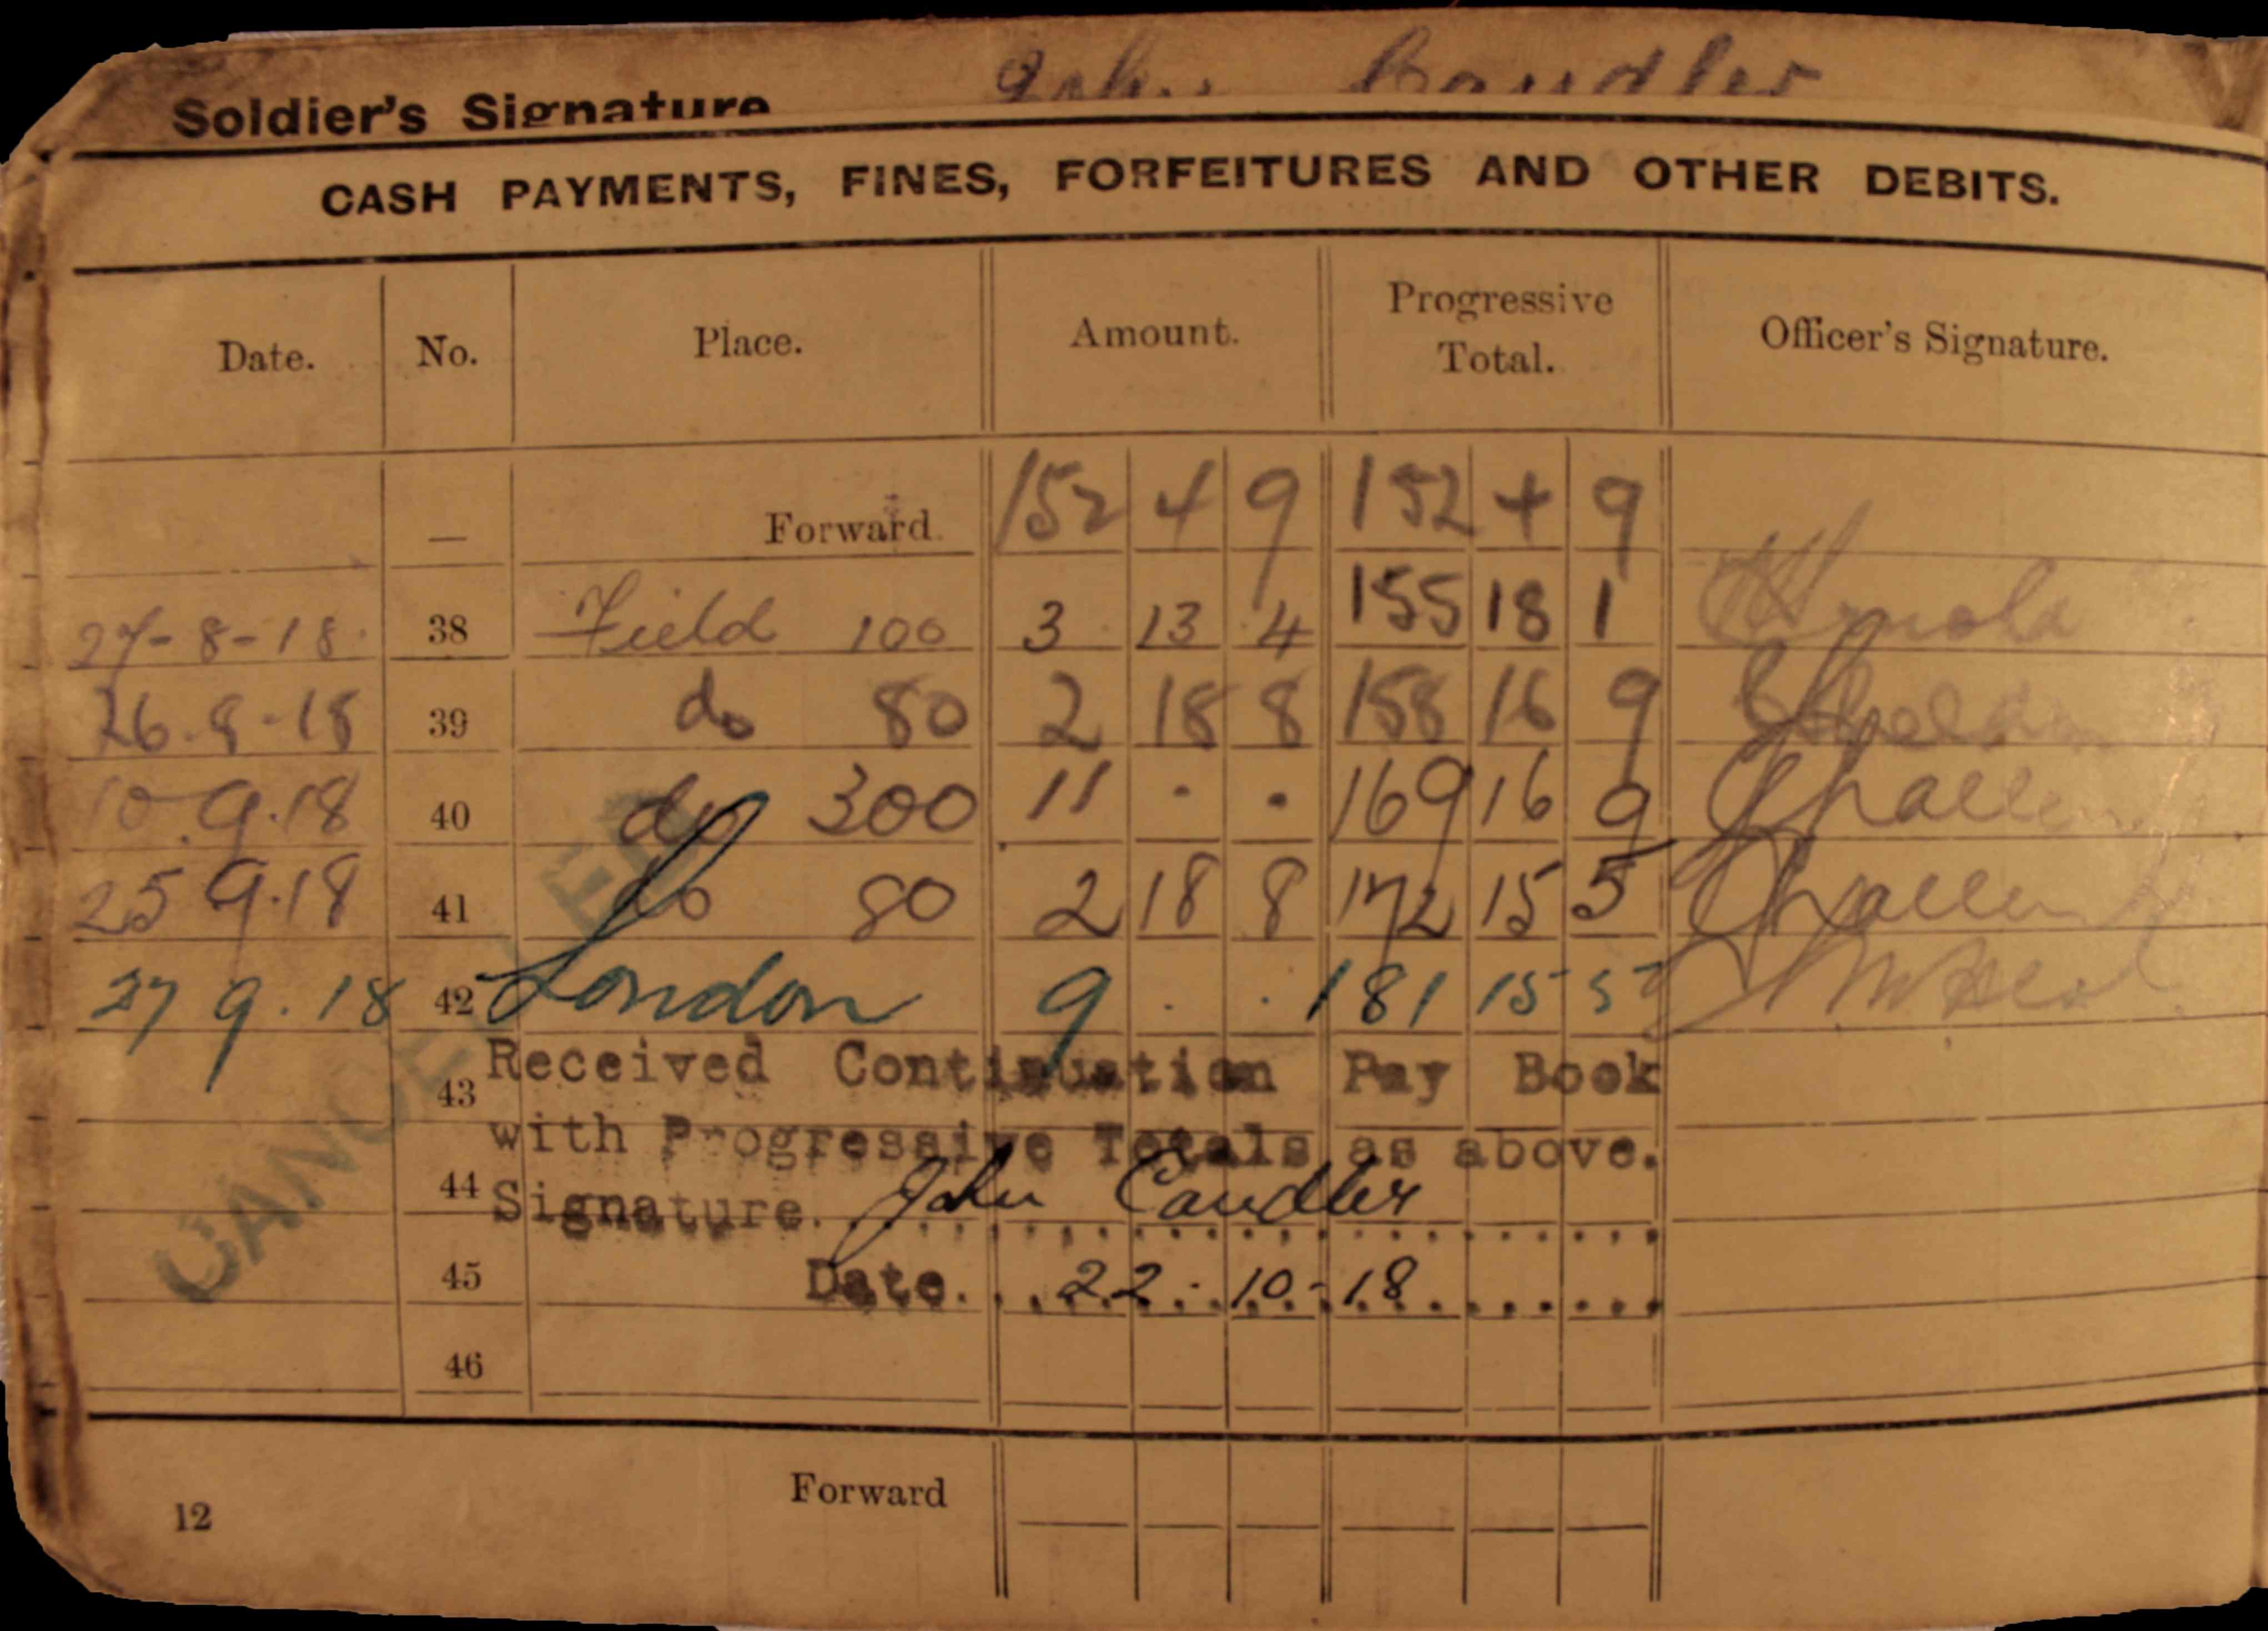 Soldier's Signature John Candler
CASH PAYMENTS, FINES, FORFEITURES AND OTHER DEBITS.
Date. No. Place. Amount. Progressive Total. Officer's Signature.
— Forward. 152 4 9 152 4 9
27-8-18. 38 Field 100 3 13 4 155 18 1
26.8-18 39 do 80 2 18 8 158 16 9
10.9.18 40 do 300 11 . . 169 16 9
25 9.18 41 do 80 2 18 8 172 15 5
27 9.18 42 London 9 . . 181 15 5
CANCELLED
43 Received Continuation Pay Book
with Progressive Totals as above.
44 Signature. John Candler
45 Date. 22-10-18
46
Forward
12